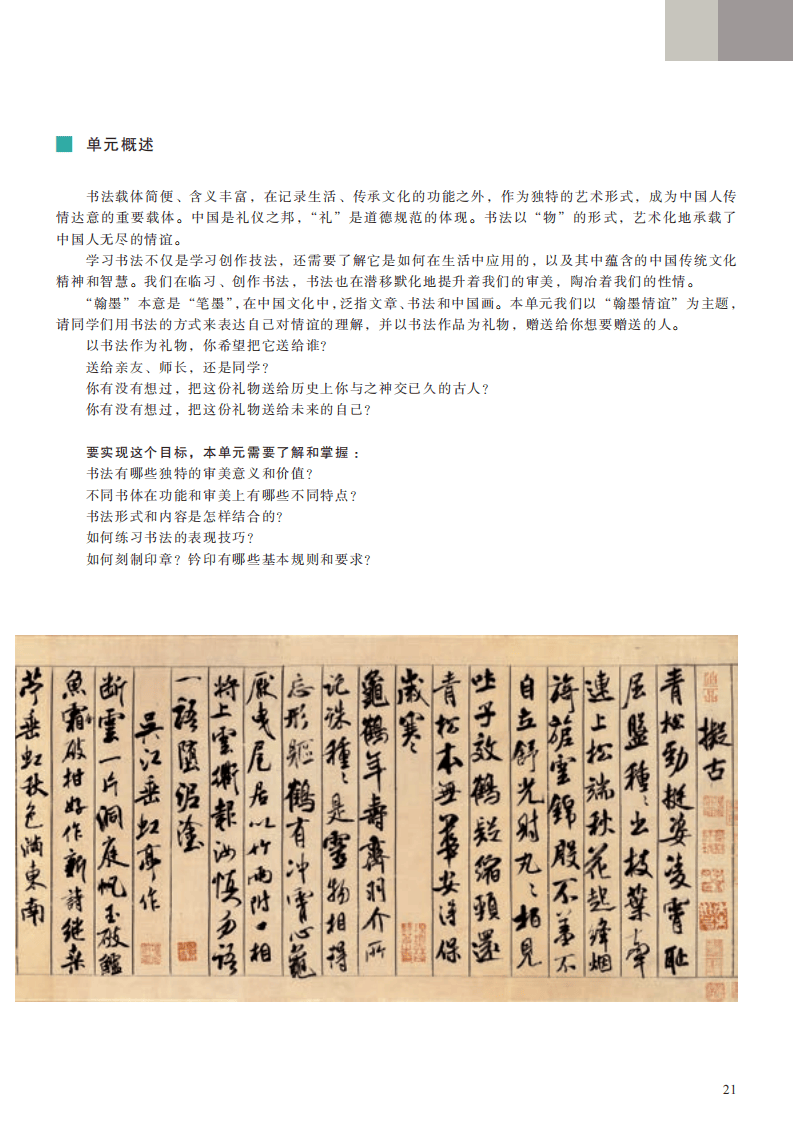 单元概述
书法载体简便、含义丰富，在记录生活、传承文化的功能之外，作为独特的艺术形式，成为中国人传
情达意的重要载体。中国是礼仪之邦，“礼”是道德规范的体现。书法以“物”的形式，艺术化地承载了
中国人无尽的情谊。
学习书法不仅是学习创作技法，还需要了解它是如何在生活中应用的，以及其中蕴含的中国传统文化
精神和智慧。我们在临习、创作书法，书法也在潜移默化地提升着我们的审美，陶冶着我们的性情。
“翰墨”本意是“笔墨”，在中国文化中，泛指文章、书法和中国画。本单元我们以“翰墨情谊”为主题，
请同学们用书法的方式来表达自己对情谊的理解，并以书法作品为礼物，赠送给你想要赠送的人。
以书法作为礼物，你希望把它送给谁？
送给亲友、师长，还是同学？
你有没有想过，把这份礼物送给历史上你与之神交已久的古人？
你有没有想过，把这份礼物送给未来的自己？
要实现这个目标，本单元需要了解和掌握：
书法有哪些独特的审美意义和价值？
不同书体在功能和审美上有哪些不同特点？
书法形式和内容是怎样结合的？
如何练习书法的表现技巧？
如何刻制印章？钤印有哪些基本规则和要求？
擬古
青松勁挺姿凌霄恥
屈盤種々出枝葉牽
連上松端秋花起絳烟
旖旎雲錦殷不羞不
自立舒光射丸々柏見
吐子效鶴疑縮頸還
青松本無華安得保
歲寒々
龜鶴年壽齊羽介所
託殊種々是靈物相得
忘形軀鶴有沖霄心龜
厭曳尾居以竹兩附口相
將上雲衢報汝慎勿語
一語墮泥塗
吳江垂虹亭作
断雲一片洞庭帆玉破鱸
魚霜破柑好作新詩継桑
苧垂虹秋色満東南
21